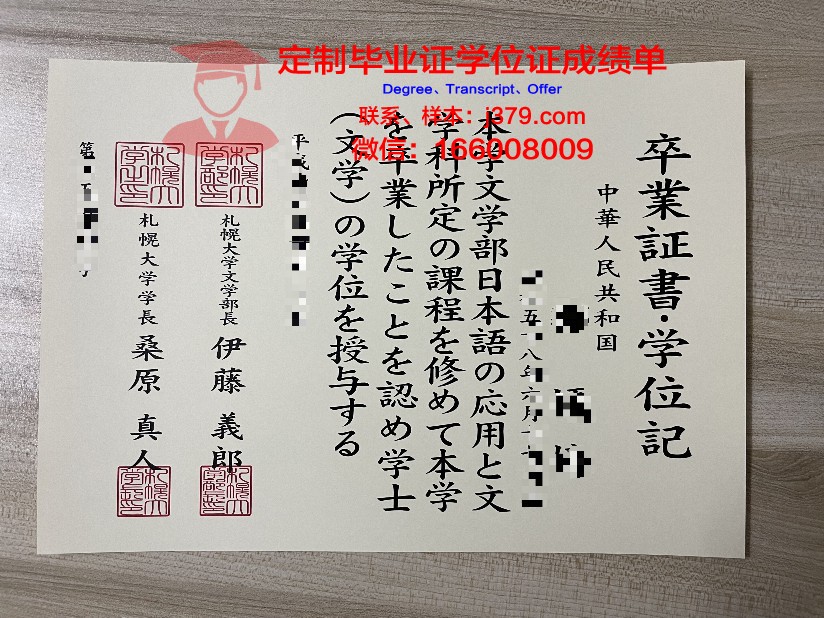 定制毕业证学位证成绩单
Degree、Transcript、Offer
联系、样本：j379.com
微信：166008009
卒業証書・学位記
中華人民共和国
五 八年六月十
本学文学部日本語の応用と文
学科所定の課程を修めて本学
を卒業したことを認め学士
（文学）の学位を授与する
平成
札幌大学文学部長 伊藤 義郎
札幌大学学長 桑原 真人
第